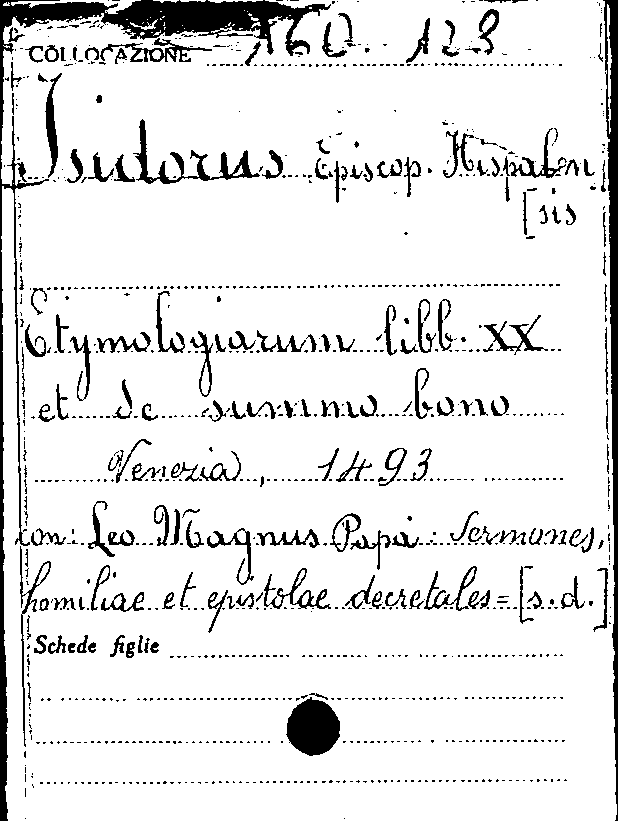 COLLOCAZIONE 160. 123
Isidorus Episcop. Hispalen
[sis
Etymologiarum libb. XX
et de summo bono
Venezia, 1493
con: Leo Magnus Papa: Sermones,
homiliae et epistolae decretales = [s.d.]
Schede figlie